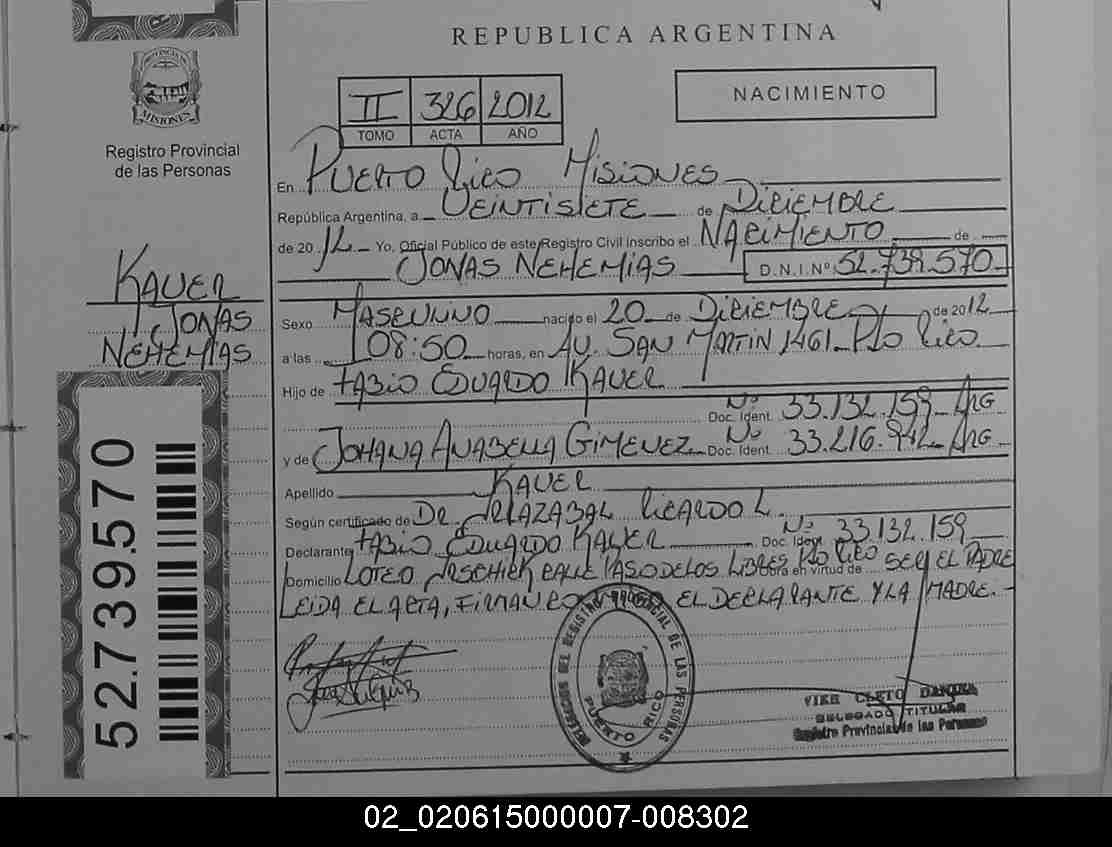 REPUBLICA ARGENTINA
PROVINCIA DE
MISIONES
Registro Provincial
de las Personas
II 326 2012
TOMO ACTA AÑO
NACIMIENTO
En Puerto Rico Misiones
República Argentina, a Veintisiete de Diciembre
de 2012 Yo, Oficial Público de este Registro Civil inscribo el Nacimiento de
Jonas Nehemias D.N.I.Nº 52.739.570
Kauer
Jonas
Nehemias
Sexo Masculino nacido el 20 de Diciembre de 2012
a las 08:50 horas, en Av. San Martin 1461 Pto Rico
Hijo de Fabio Eduardo Kauer
Doc. Ident. Nº 33.132.159 Arg
y de Johana Anabella Gimenez Doc. Ident. Nº 33.216.942 Arg
Apellido Kauer
Según certificado de Dr. Ricardo L.
Declarante Fabio Eduardo Kauer Doc. Ident. Nº 33.132.159
Domicilio Loteo calle Paso de los Libres Pto Rico Obra en virtud de ser el Padre
Leida el acta, firman el declarante y la madre.-
52.739.570
DELEGACION DEL REGISTRO PROVINCIAL DE LAS PERSONAS
PUERTO RICO
DELEGADO TITULAR
Registro Provincial de las Personas
02_020615000007-008302